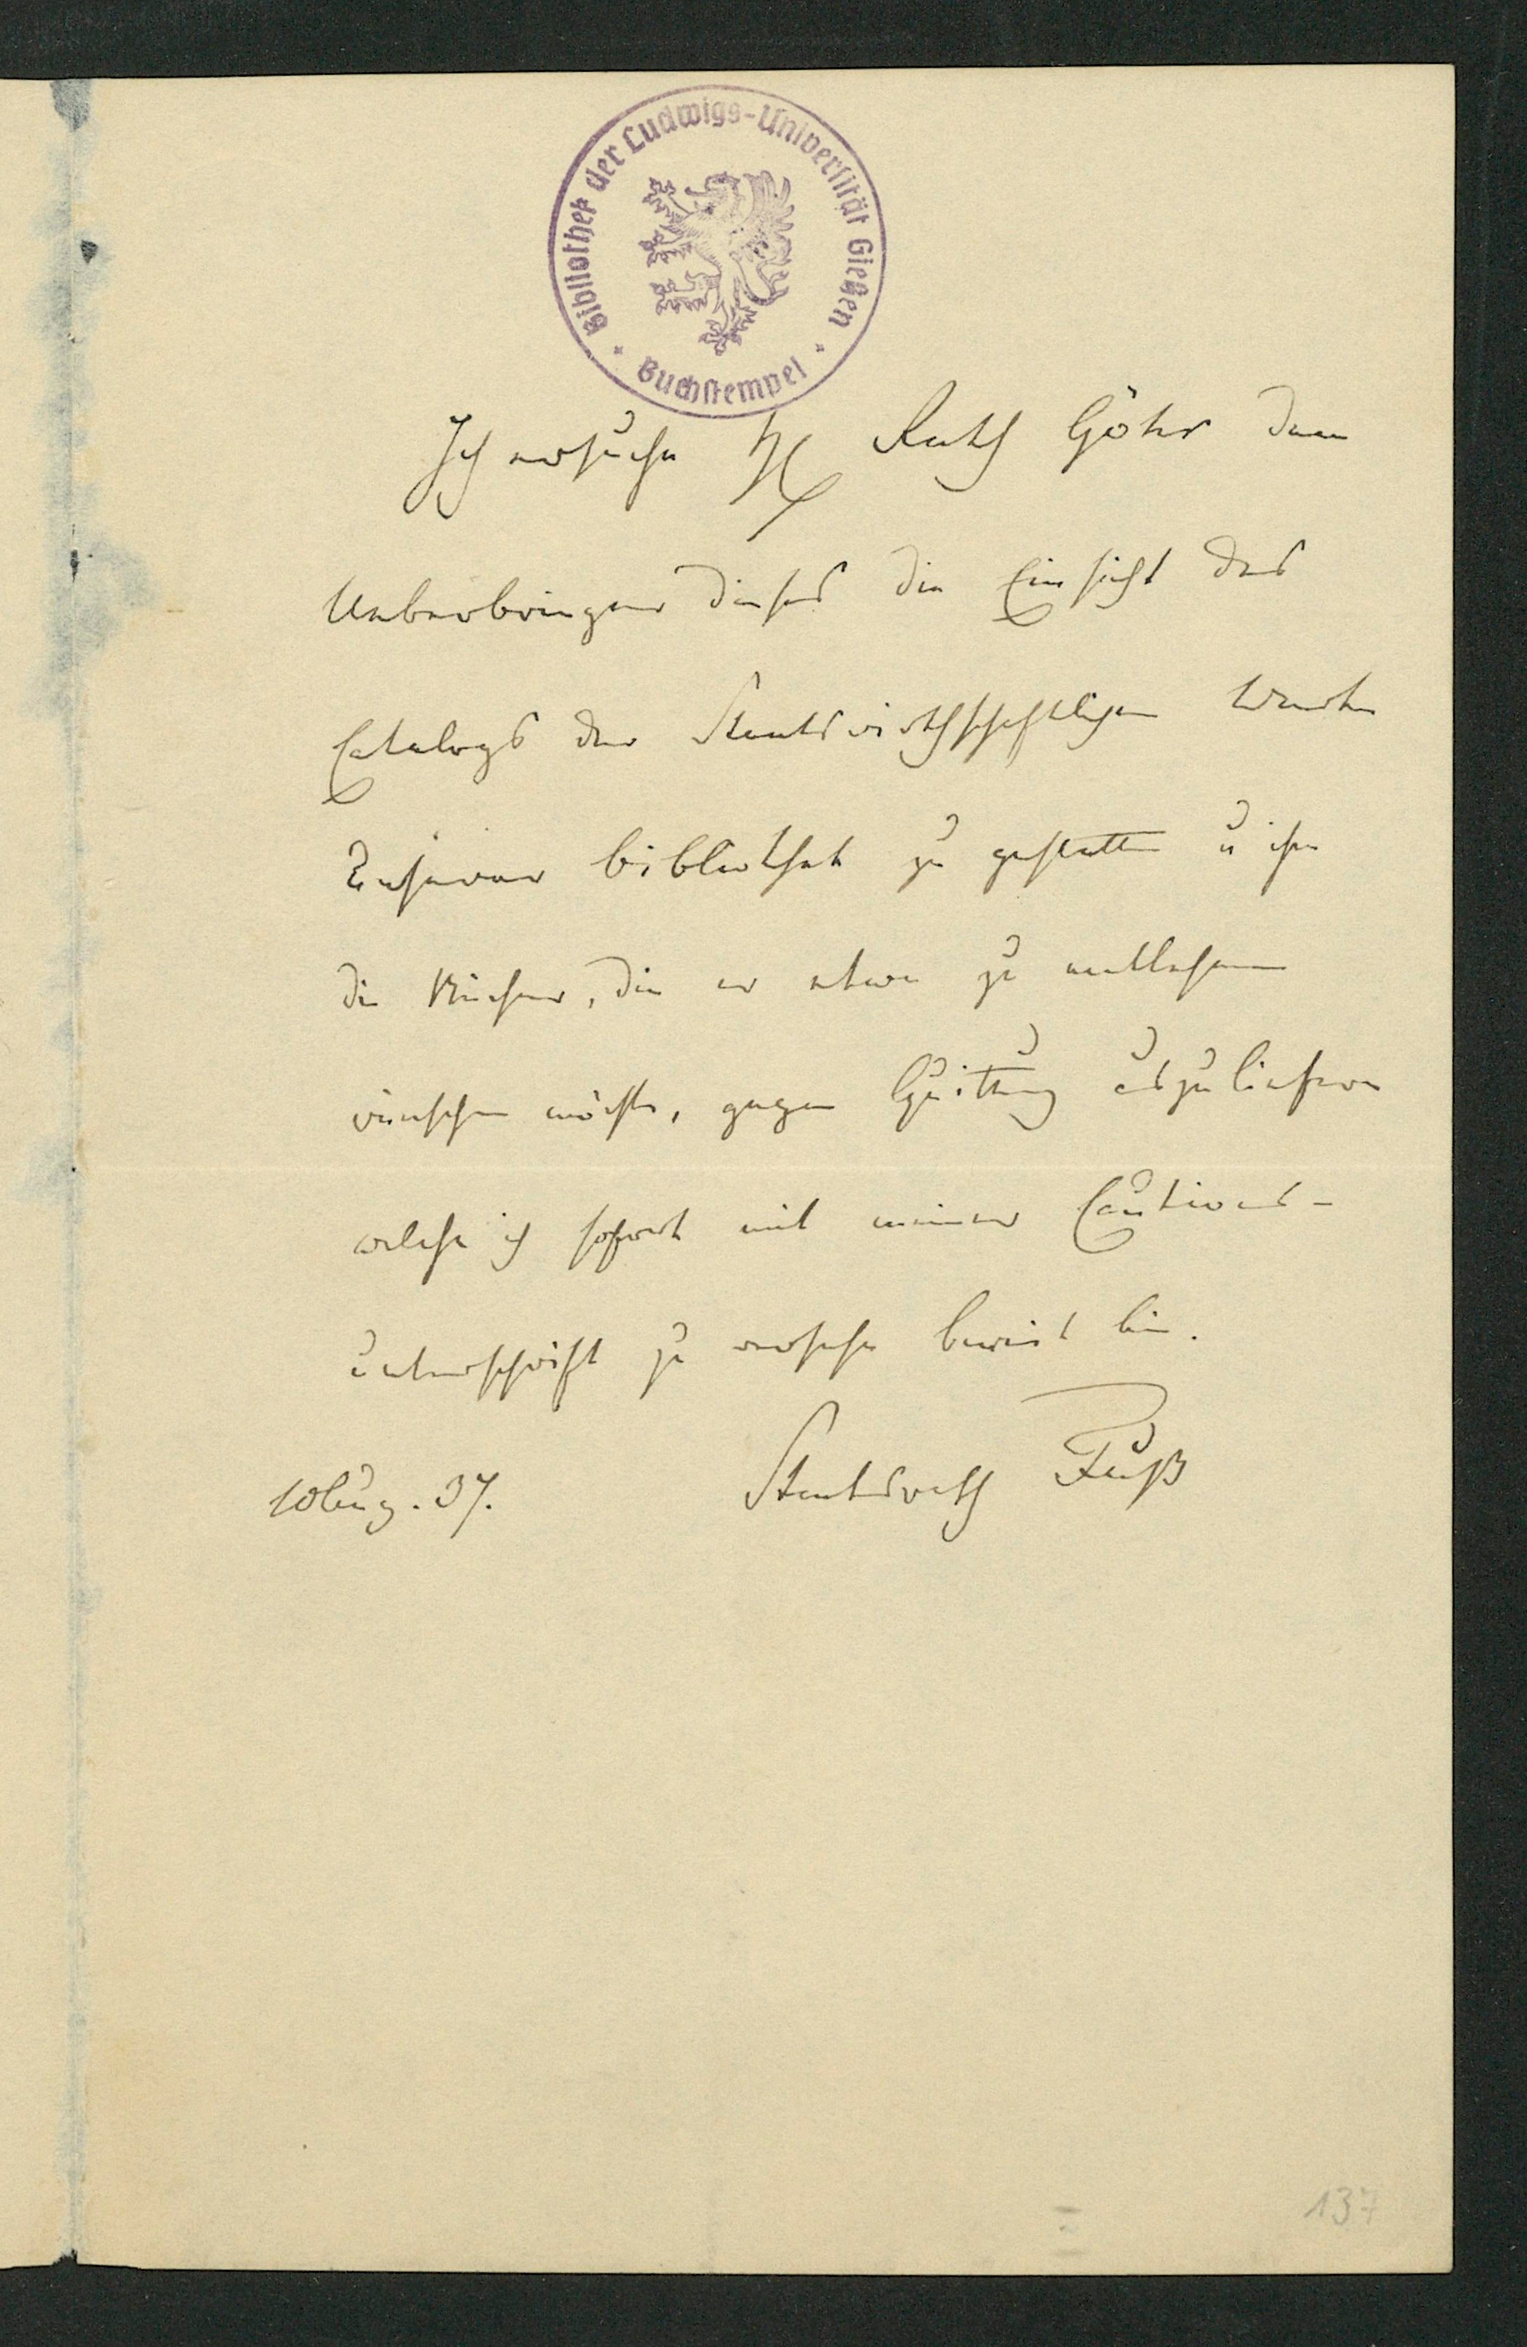 Bibliothek der Ludwigs-Universität Gießen
Buchstempel
Ich ersuche H Rath Göher dem
Ueberbringer dieses die Einsicht des
Catalogs der Staatswirthschaftlichen Werke
unserer Bibliothek zu gestatten u ihm
die Bücher, die er etwa zu entlehnen
wünschen möchte, gegen Quittung abzuliefern
welche ich sofort mit meiner Cautions-
unterschrift zu versehen bereit bin.
10 Aug. 37. Staatsrath Fuß
137